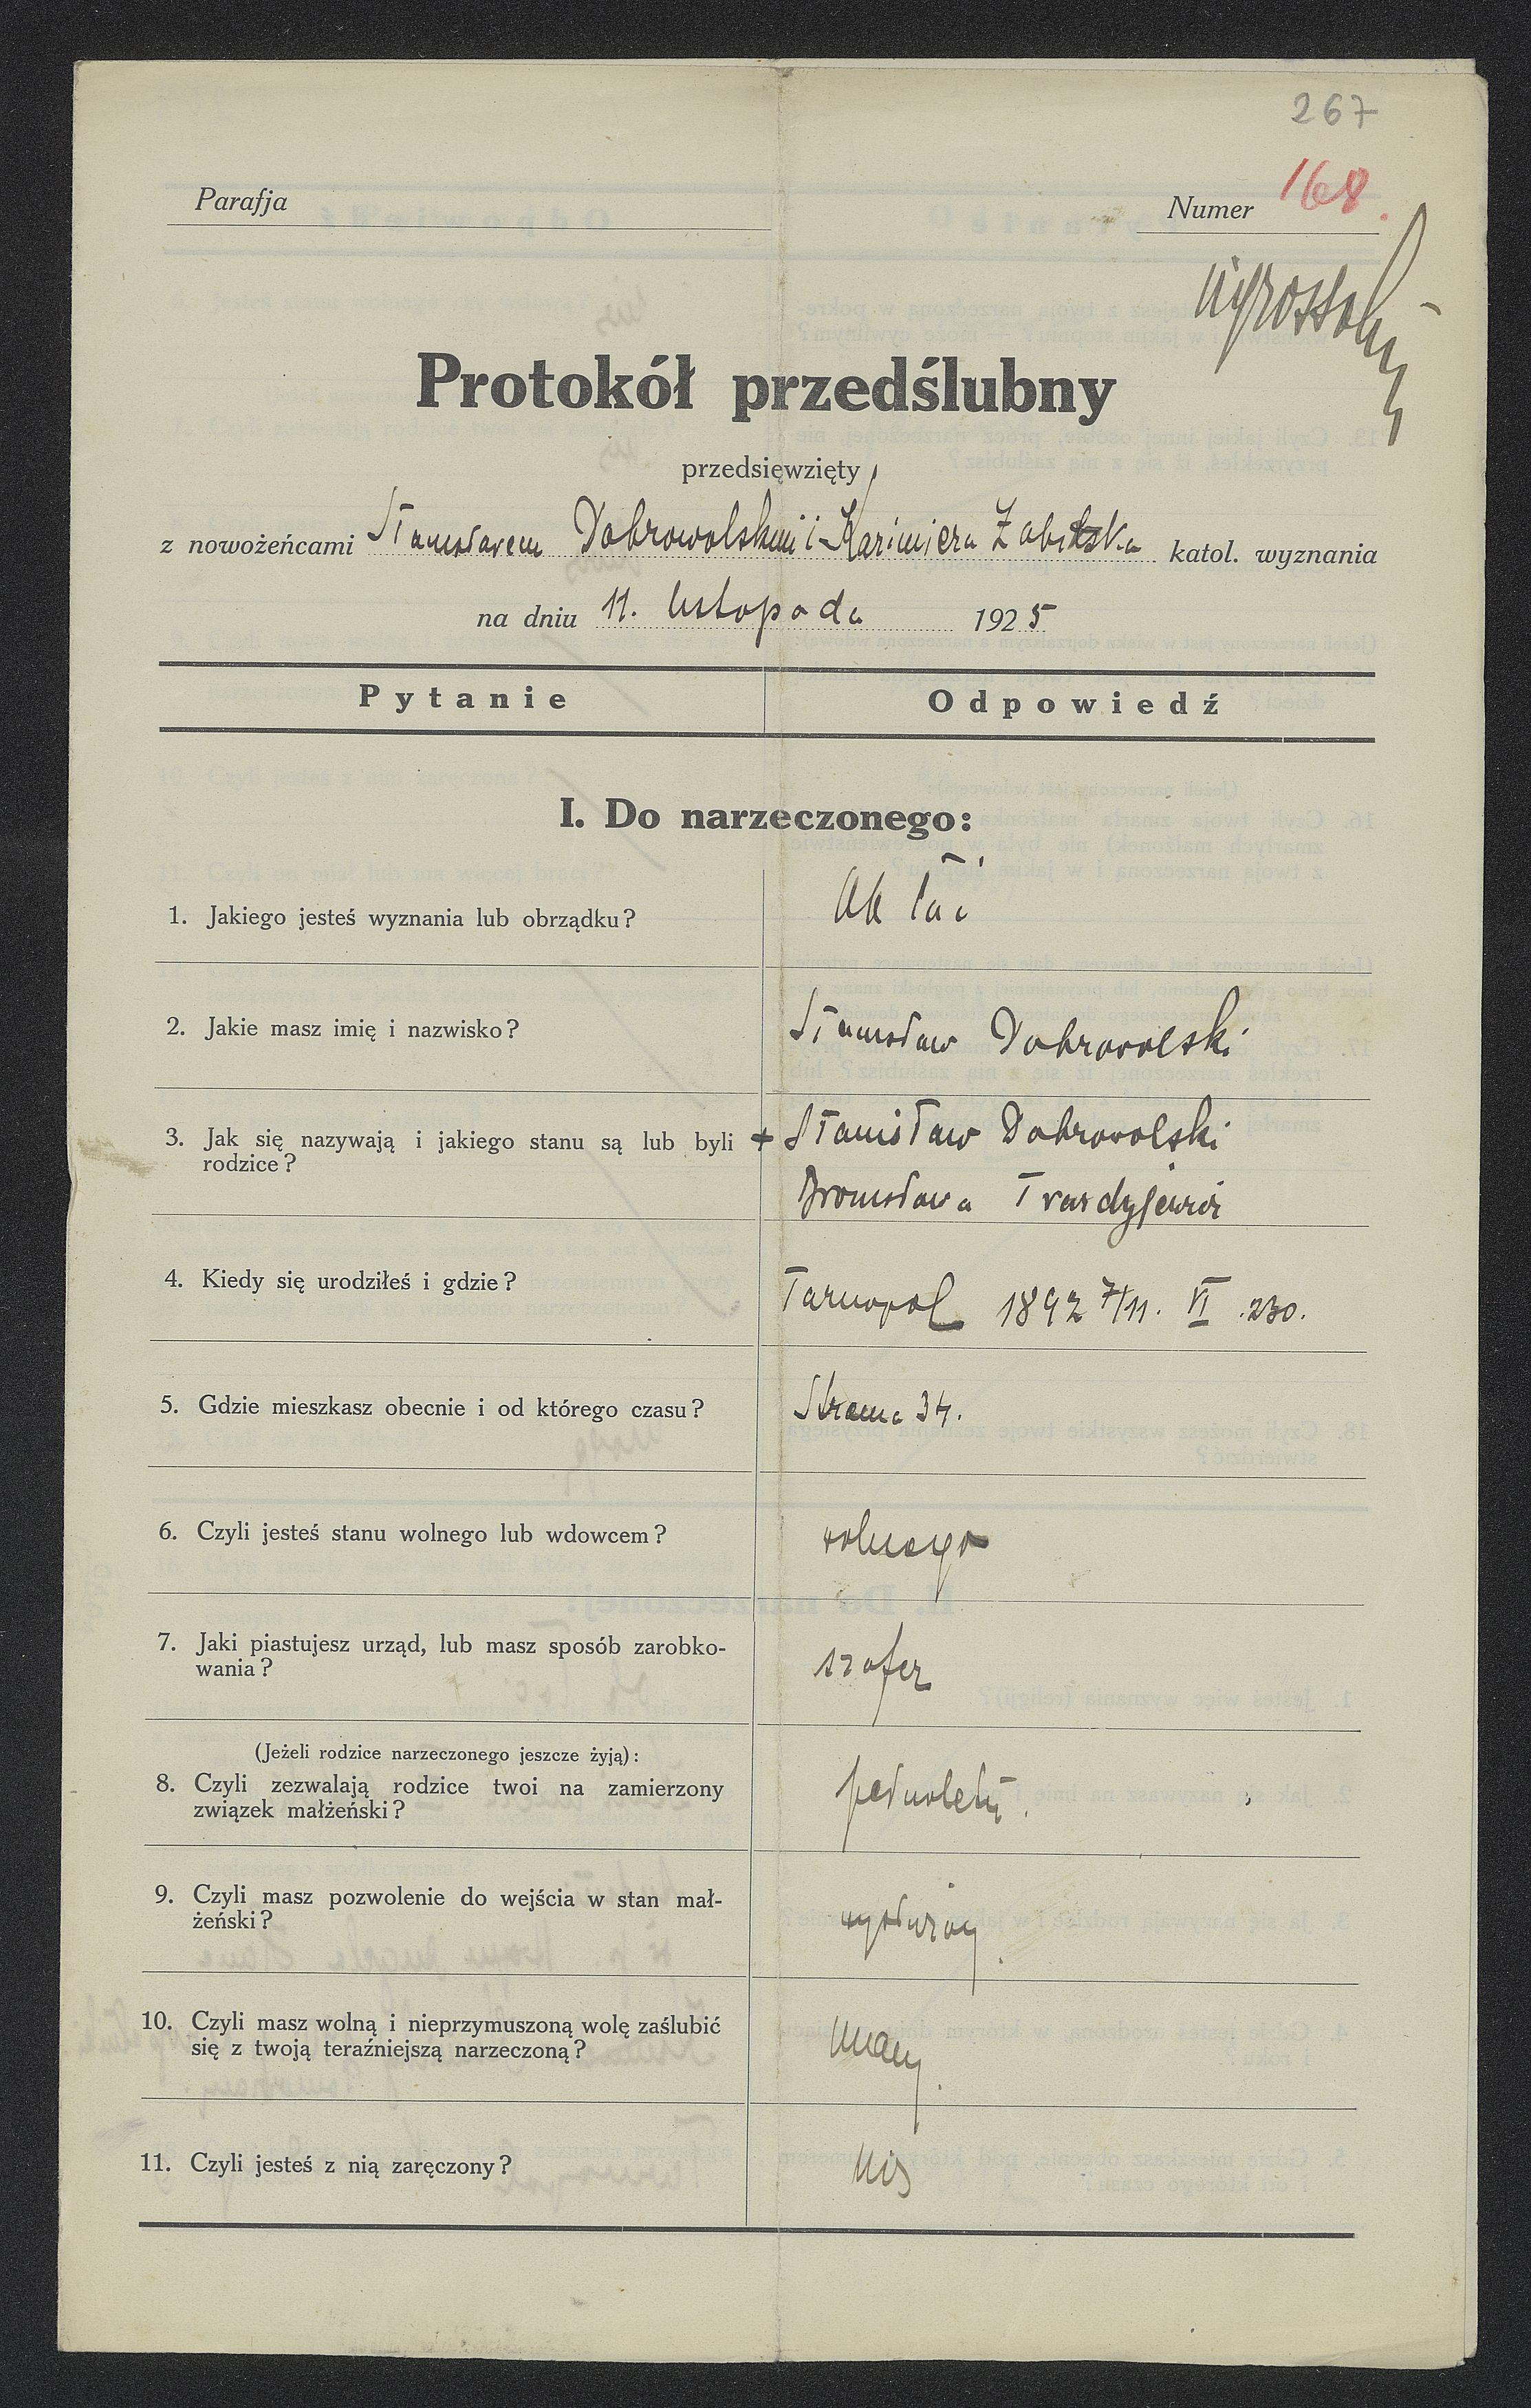 267
Parafja
Numer 168.
Protokół przedślubny
przedsięwzięty
z nowożeńcami Stanisławem Dobrowolskim i Kazimiera katol. wyznania
na dniu 11. listopada 1925
Pytanie
Odpowiedź
I. Do narzeczonego:
1. Jakiego jesteś wyznania lub obrządku?
łać
2. Jakie masz imię i nazwisko?
Stanisław Dobrowolski
3. Jak się nazywają i jakiego stanu są lub byli
rodzice?
+ Stanisław Dobrowolski
Bronisława
4. Kiedy się urodziłeś i gdzie?
Tarnopol 1892 7/11. VI .230.
5. Gdzie mieszkasz obecnie i od którego czasu?
34.
6. Czyli jesteś stanu wolnego lub wdowcem?
wolnego
7. Jaki piastujesz urząd, lub masz sposób zarobko-
wania?
szofer
(Jeżeli rodzice narzeczonego jeszcze żyją):
8. Czyli zezwalają rodzice twoi na zamierzony
związek małżeński?
pełnoletni.
9. Czyli masz pozwolenie do wejścia w stan mał-
żeński?
10. Czyli masz wolną i nieprzymuszoną wolę zaślubić
się z twoją teraźniejszą narzeczoną?
11. Czyli jesteś z nią zaręczony?